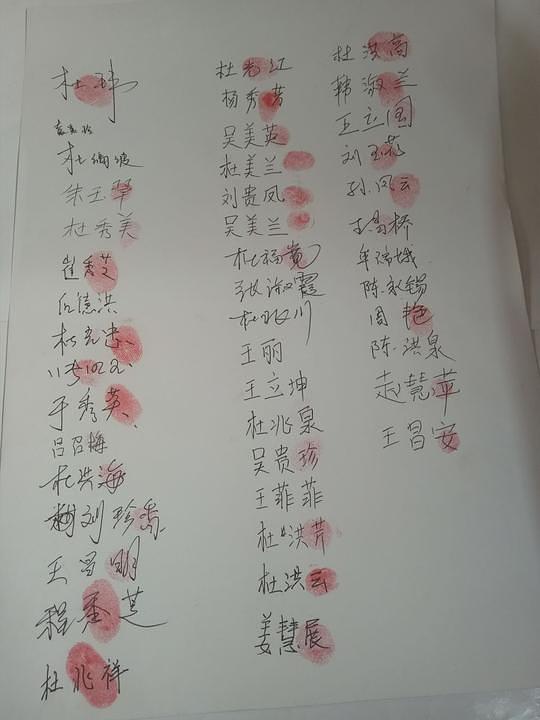 杜玮
朱玉琴
杜秀美
崔秀芝
丘德洪
杜克忠
于秀英
吕召梅
杜洪海
刘珍香
王昌明
程秀芝
杜兆祥
杜光江
杨秀芳
吴美英
杜美兰
刘贵凤
吴美兰
杜福贵
张淑霞
王丽
王立坤
杜兆泉
吴贵珍
王菲菲
杜洪芹
杜洪云
姜慧展
杜洪高
韩淑兰
王立国
刘玉花
孙凤云
王昌桥
牟瑞娥
陈永锡
周艳
陈洪泉
赵慧萍
王昌安